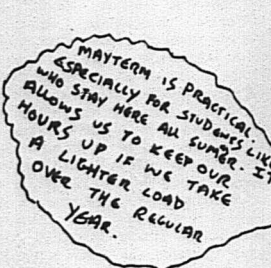 MAYTERM IS PRACTICAL.
ESPECIALLY FOR STUDENTS LIKE
WHO STAY HERE ALL SUMER. IT
ALLOWS US TO KEEP OUR
HOURS UP IF WE TAKE
A LIGHTER LOAD
OVER THE REGULAR
YEAR.